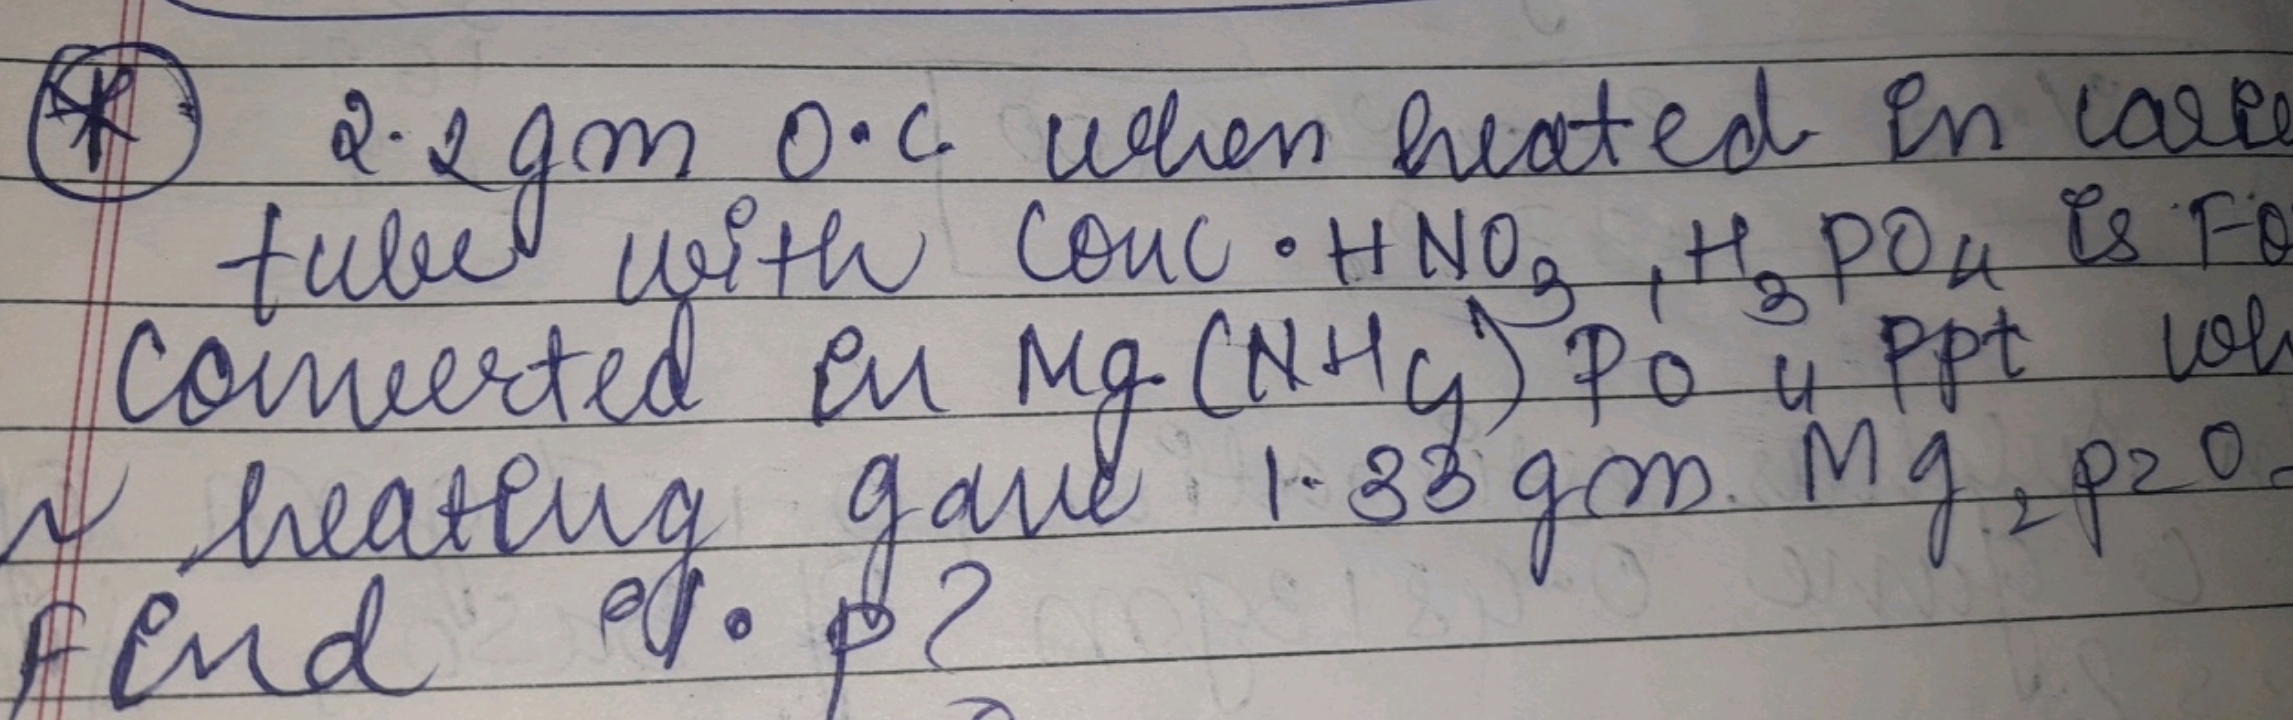 * 2.2 gm O.C. when heated in
tube with conc. HNO3, H3PO4 is
converted in Mg(NH4)PO4 ppt
heating gave 1.33 gm. Mg2P2O
Find %. P?